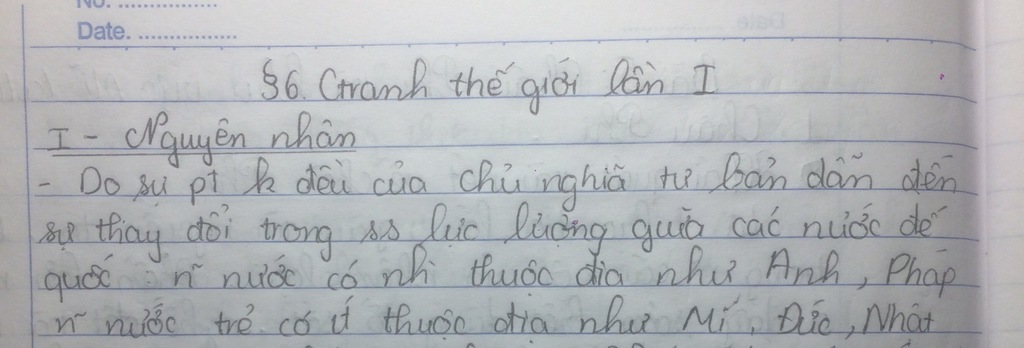 No. ................
Date. ................
§6. Ctranh thế giới lần I
I - Nguyên nhân
- Do sự pt k đều của chủ nghĩa tư bản dẫn đến
sự thay đổi trong ss lực lượng giữa các nước đế
quốc : n~ nước có nh` thuộc địa như Anh, Pháp
n~ nước trẻ có ít thuộc địa như Mĩ, Đức, Nhật